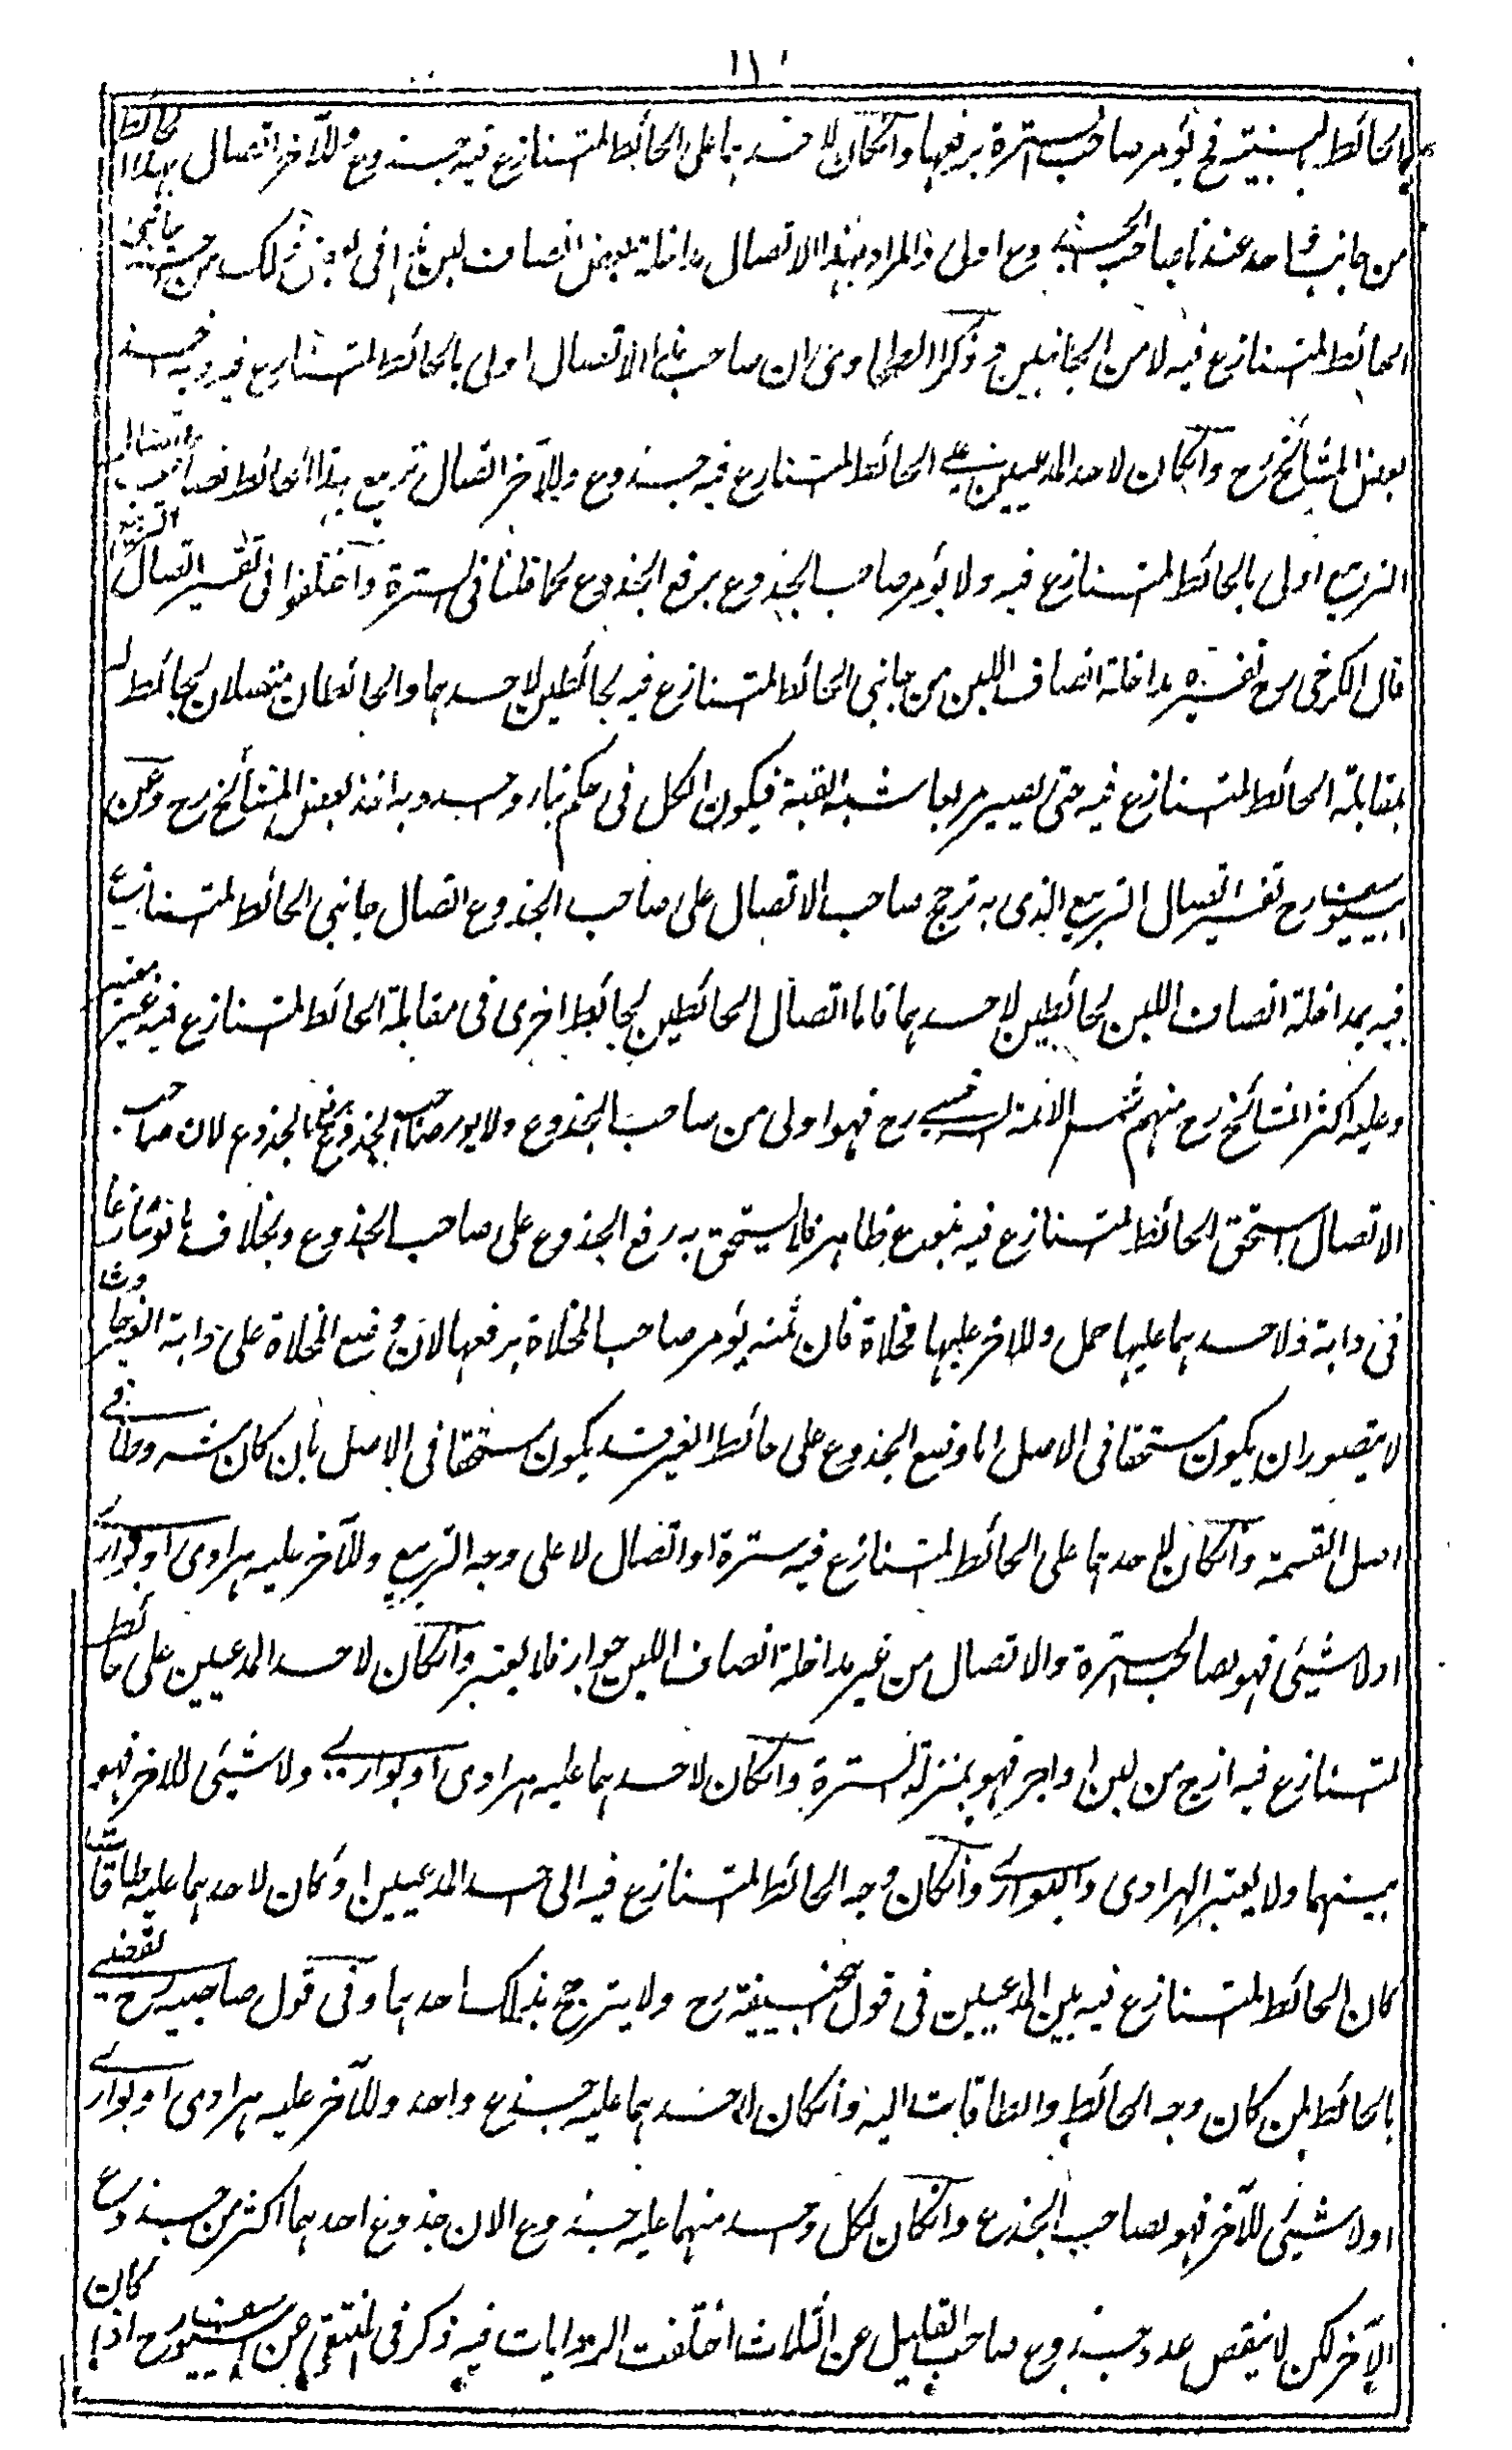 الحائط بالبينة فح يؤمر صاحب السترة برفعها وانكان لاحدهما على الحائط المتنازع فيه جذوع وللآخر اتصال بهذا الحائط
من جانب واحد عندنا صاحب الجذوع اولى والمراد بهذا الاتصال مداخلة بعض انصاف لبن في بعض ذلك من جانبى
الحائط المتنازع فيه لا من الجانبين وذكر الطحاوى ان صاحب هذا الاتصال اولى بالحائط المتنازع فيه وبه اخذ
بعض المشائخ رح وانكان لاحد المدعيين على الحائط المتنازع فيه جذوع وللآخر اتصال تربيع بهذا الحائط فصاحب اتصال
التربيع اولى بالحائط المتنازع فيه ولا يؤمر صاحب الجذوع برفع الجذوع كما قلنا فى السترة واختلفوا فى تفسير اتصال التربيع
قال الكرخى رح تفسيره مداخلة انصاف اللبن من جانبى الحائط المتنازع فيه بحائطين لاحدهما والحائطان متصلان بحائط له
بمقابلة الحائط المتنازع فيه حتى يصير مربعا شبه القبة فيكون الكل فى حكم بناء واحد وبه اخذ بعض المشائخ رح وعن
ابيوسف رح تفسير اتصال التربيع الذى به ترجح صاحب الاتصال على صاحب الجذوع اتصال جانبى الحائط المتنازع
فيه بمداخلة انصاف اللبن بحائطين لاحدهما فاما اتصال الحائطين بحائط اخرى فى مقابلة الحائط المتنازع فيه غير معتبر
وعليه اكثر المشائخ رح منهم شمس الائمة السرخسى رح فهو اولى من صاحب الجذوع ولا يؤمر صاحب الجذوع برفع الجذوع لان صاحب
الاتصال استحق الحائط المتنازع فيه بنوع ظاهر فلا يستحق به رفع الجذوع على صاحب الجذوع وبخلاف ما لو تنازعا
فى دابة ولاحدهما عليها حمل وللاخر عليها مخلاة فان ثمه يؤمر صاحب المخلاة برفعها لان وضع المخلاة على دابة الغير
لا يتصور ان يكون مستحقا فى الاصل اما وضع الجذوع على حائط الغير قد يكون مستحقا فى الاصل بان كان مشروطا فى
اصل القسمة وانكان لاحدهما على الحائط المتنازع فيه سترة او اتصال لا على وجه التربيع وللآخر عليه هرادى او بوارى
اولا شيئى فهو لصاحب السترة والاتصال من غير مداخلة انصاف اللبن جوار فلا يعتبر وانكان لاحد المدعيين على حائط
المتنازع فيه ازج من لبن او اجر فهو بمنزلة السترة وانكان لاحدهما عليه هرادى او بوارى ولا شيئى للاخر فهو
بينهما ولا يعتبر الهرادى والبوارى وانكان وجه الحائط المتنازع فيه الى احد المدعيين او كان لاحدهما عليه طاقات
كان الحائط المتنازع فيه بين المدعيين فى قول ابيحنيفة رح ولا يترجح بذلك احدهما وفى قول صاحبيه رح يقضى
بالحائط لمن كان وجه الحائط والطاقات اليه وانكان لاحدهما عليه جذع واحد وللآخر عليه هرادى او بوارى
اولا شيئى للآخر فهو لصاحب الجذع وانكان لكل واحد منهما عليه جذوع الا ان جذوع احدهما اكثر من جذوع
الآخر لكن لا ينقص عدد جذوع صاحب القليل عن الثلاث اختلفت الروايات فيه ذكر فى المنتقى عن ابيوسف رح اذا كان